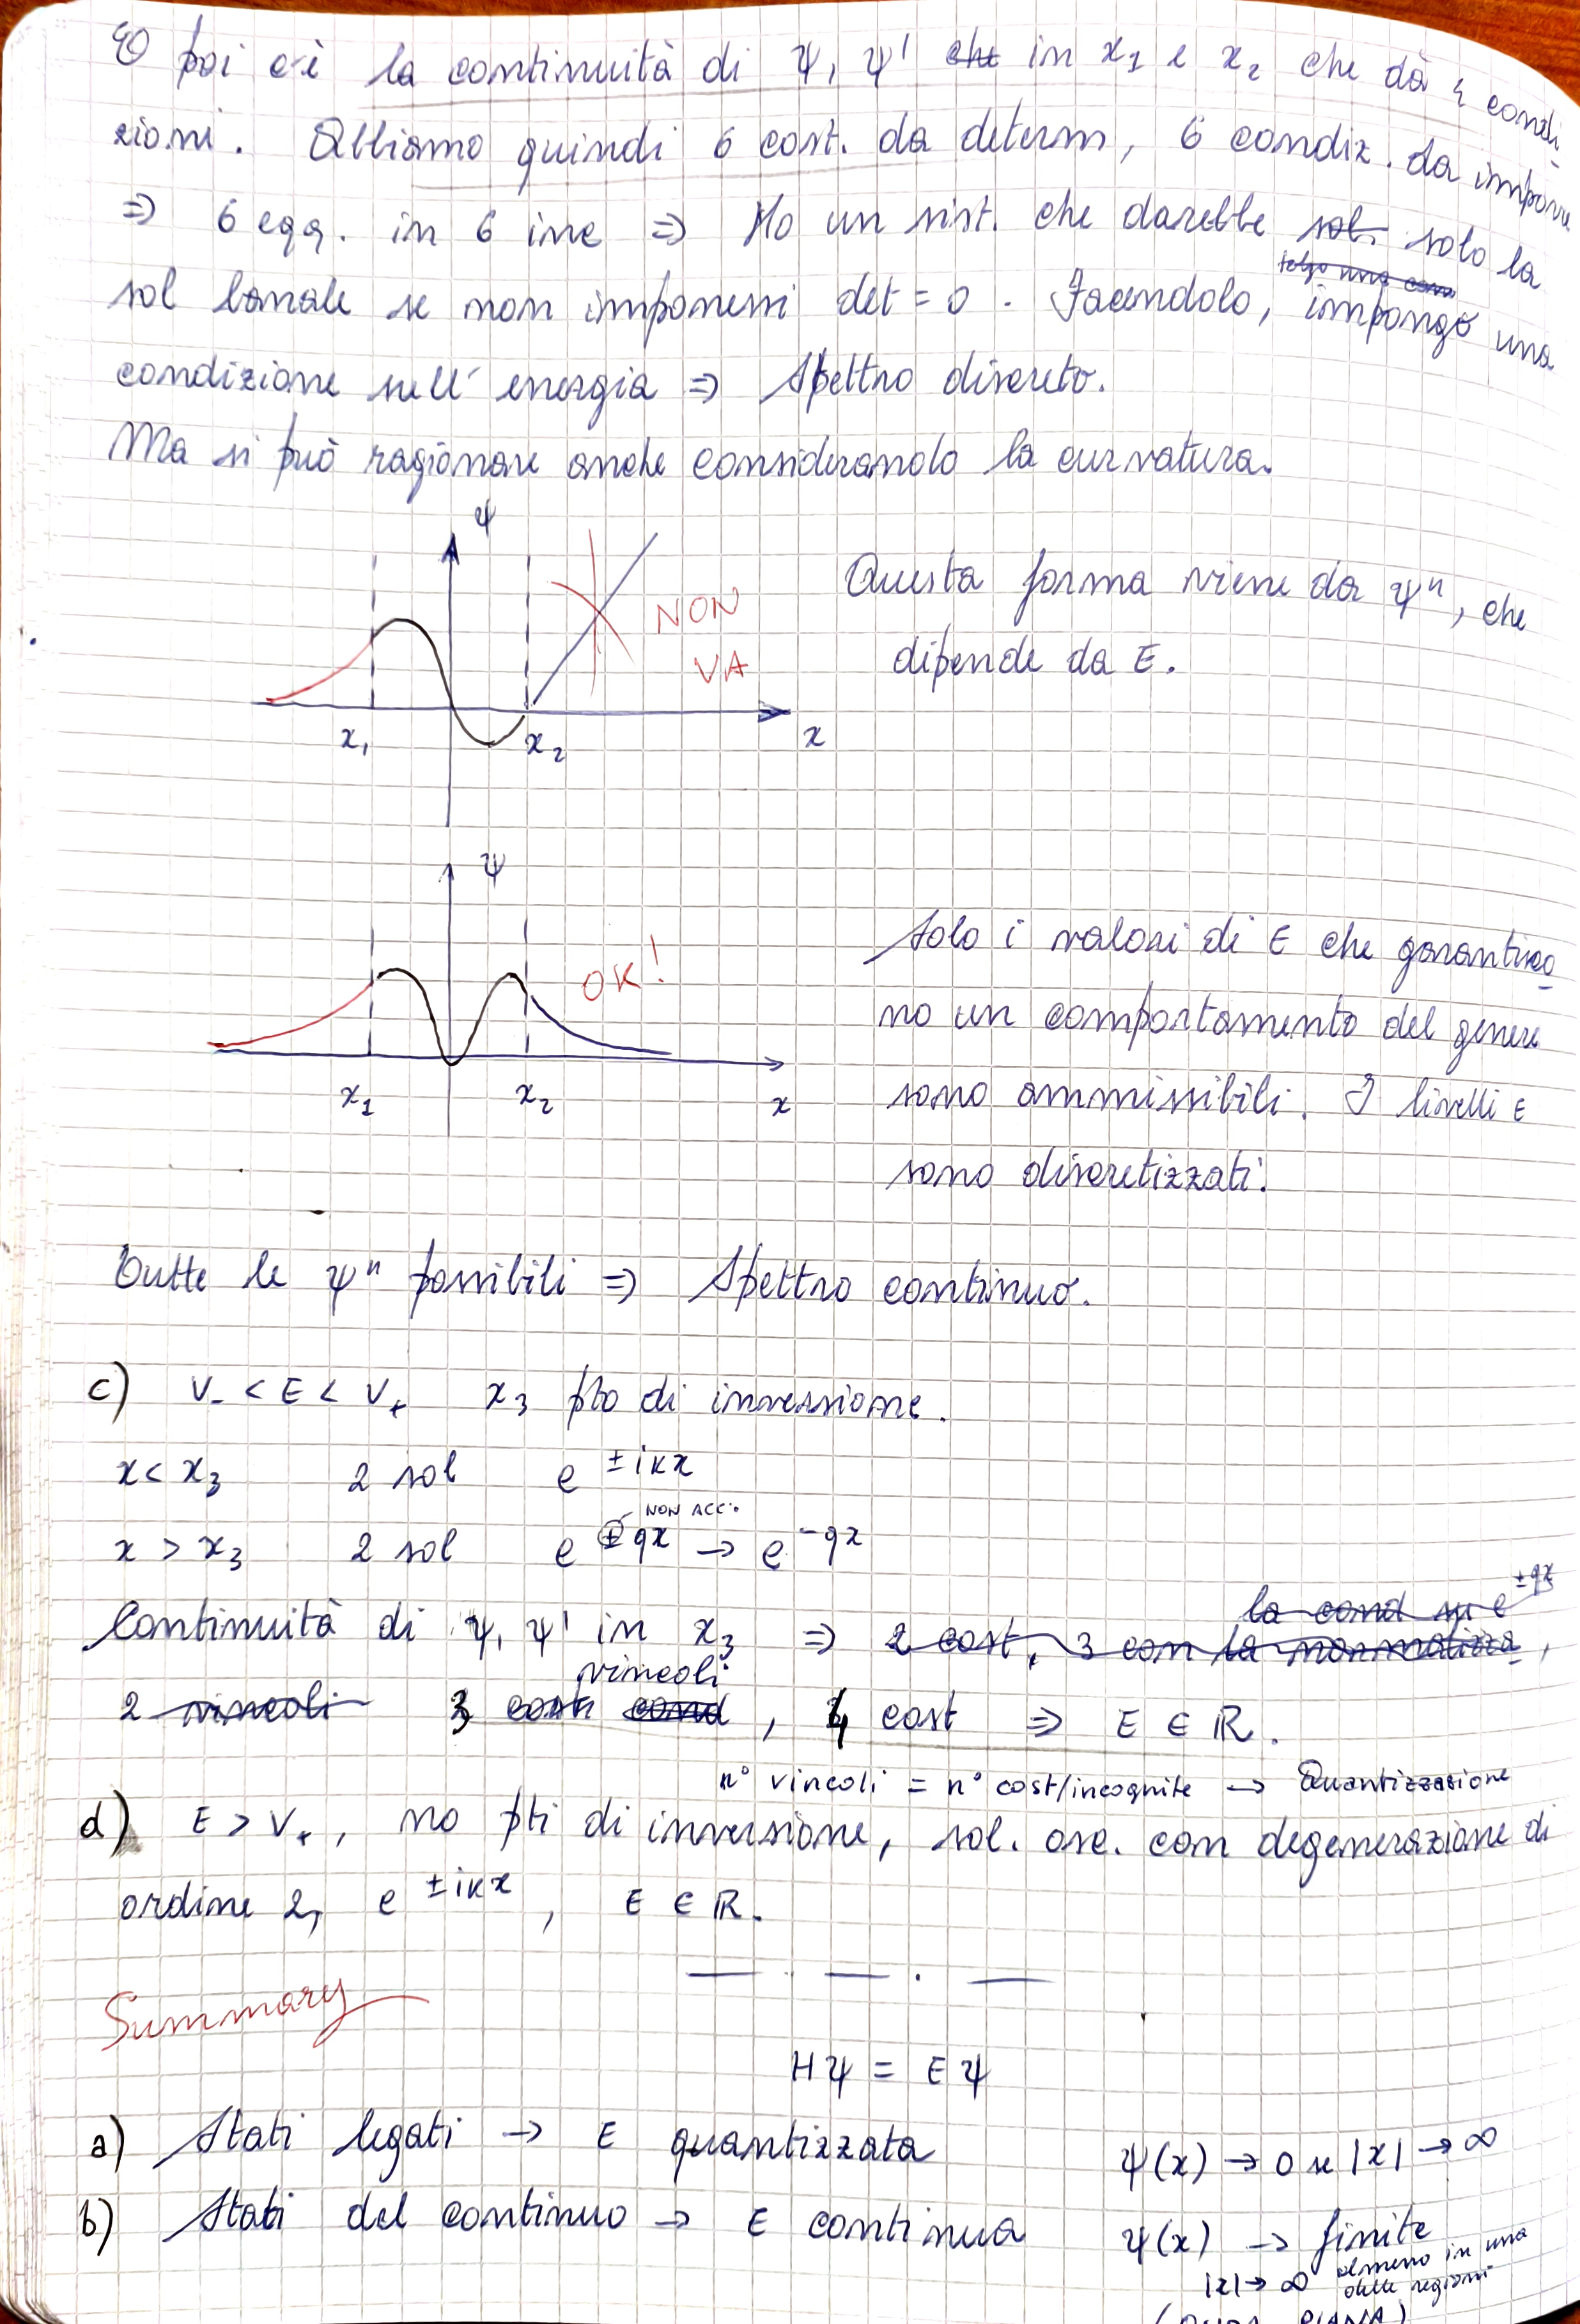 E poi c'è la continuità di ψ, ψ' che in x₁ e x₂ che dà 4 condi-
zioni. Abbiamo quindi 6 cost. da determ, 6 condiz. da imporre
⇒ 6 eqq. in 6 inc ⇒ Ho un sist. che darebbe sol. solo la
sol banale se non imponessi det = 0. Facendolo, impongo una
condizione sull'energia ⇒ Spettro discreto.
Ma si può ragionare anche considerando la curvatura.
ψ
NON
VA
x₁
x₂
x
Questa forma viene da ψ", che
dipende da E.
ψ
OK!
x₁
x₂
x
Solo i valori di E che garantisco
no un comportamento del genere
sono ammissibili. I livelli E
sono discretizzati.
Tutte le ψ" possibili ⇒ Spettro continuo.
c) V₋ < E < V₊ x₃ pto di inversione.
x < x₃ 2 sol e^±ikx
NON ACC.
x > x₃ 2 sol e^±qx → e^-qx
la cond su e^±qx
Continuità di ψ, ψ' in x₃ ⇒ 2 cost, 3 con la normalizza,
vincoli
2 vincoli 3 cost cond, 4 cost ⇒ E ∈ ℝ.
n° vincoli = n° cost/incognite → Quantizzazione
d) E > V₊, no pti di inversione, sol. osc. con degenerazione di
ordine 2, e^±ikx, E ∈ ℝ.
Summary
Hψ = Eψ
a) Stati legati → E quantizzata ψ(x) → 0 se |x| → ∞
b) Stati del continuo → E continua ψ(x) → finite
|x| → ∞ almeno in una
delle regioni